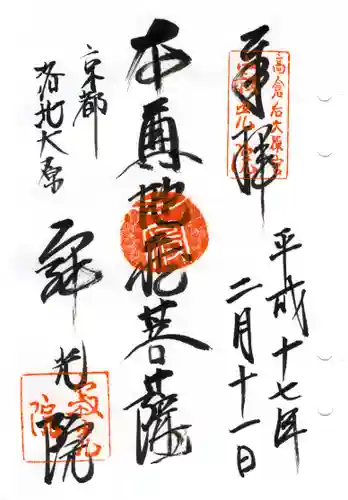 奉拝
高倉后大原
平成十七年
二月十一日
本尊地蔵菩薩
京都
洛北大原
寂光院
寂光院